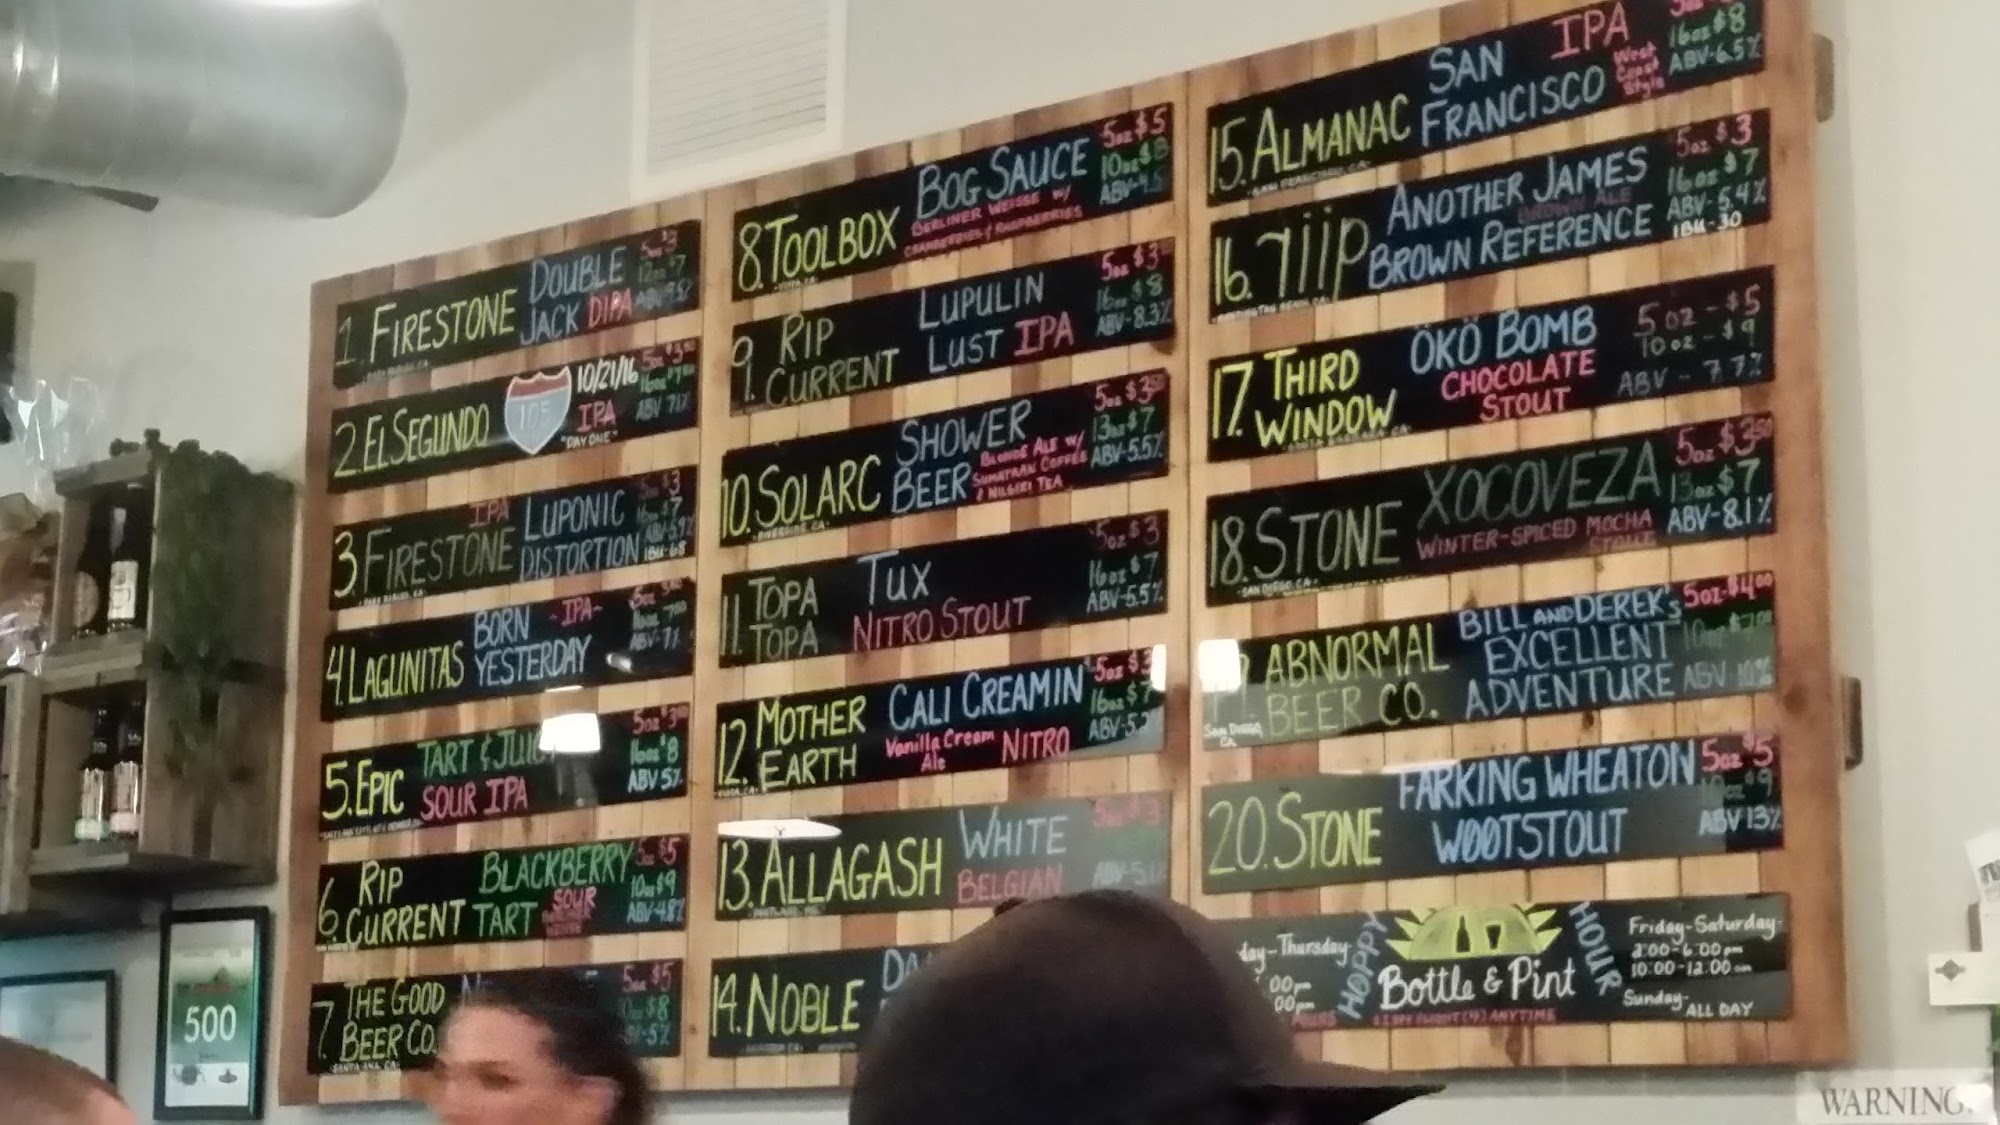 1. FIRESTONE
DOUBLE
JACK DIPA
5oz $3
12oz $7
2. EL SEGUNDO
105
10/21/16
IPA
"DAY ONE"
5oz $3.50
ABV 7.1%
3. FIRESTONE
IPA
LUPONIC
DISTORTION
5oz $3
16oz $7
ABV-5.9%
IBU-68
4. LAGUNITAS
BORN
YESTERDAY
-IPA-
ABV-7%
5. EPIC
TART &
SOUR IPA
5oz $3.50
16oz $8
ABV 5%
6. RIP
CURRENT
BLACKBERRY
TART
SOUR
5oz $5
10oz $9
ABV-4.8%
7. THE GOOD
BEER CO.
SANTA ANA, CA.
5oz $5
10oz $8
8. TOOLBOX
BOG SAUCE
BERLINER WEISSE W/
CRANBERRIES & RASPBERRIES
5oz $5
10oz $8
9. RIP
CURRENT
LUPULIN
LUST IPA
5oz $3
16oz $8
ABV-8.3%
10. SOLARC
SHOWER
BEER
BLONDE ALE W/
SUMATRAN COFFEE
& NILGIRI TEA
5oz $3.50
13oz $7
ABV-5.5%
11. TOPA
TOPA
TUX
NITRO STOUT
5oz $3
16oz $7
ABV-5.5%
12. MOTHER
EARTH
CALI CREAMIN
Vanilla Cream
Ale
NITRO
5oz $3
16oz $7
13. ALLAGASH
WHITE
BELGIAN
5oz $3
14. NOBLE
15. ALMANAC
SAN
FRANCISCO
IPA
West
Coast
Style
16oz $8
ABV-6.5%
16. riip
ANOTHER JAMES
BROWN ALE
BROWN REFERENCE
5oz $3
16oz $7
ABV-5.4%
IBU-30
17. THIRD
WINDOW
ÖKÖ BOMB
CHOCOLATE
STOUT
5oz - $5
10oz - $9
ABV - 7.7%
18. STONE
SAN DIEGO, CA.
XOCOVEZA
WINTER-SPICED MOCHA
STOUT
5oz $3.50
13oz $7
ABV-8.1%
ABNORMAL
BEER CO.
SAN DIEGO,
CA
BILL AND DEREK'S
EXCELLENT
ADVENTURE
5oz-$4.00
ABV 10%
20. STONE
FARKING WHEATON
WØØTSTOUT
5oz $5
10oz $9
ABV 13%
day-Thursday
HOPPY
HOUR
Bottle & Pint
Friday-Saturday-
2:00-6:00pm
10:00-12:00am
Sunday-
ALL DAY
500
WARNING